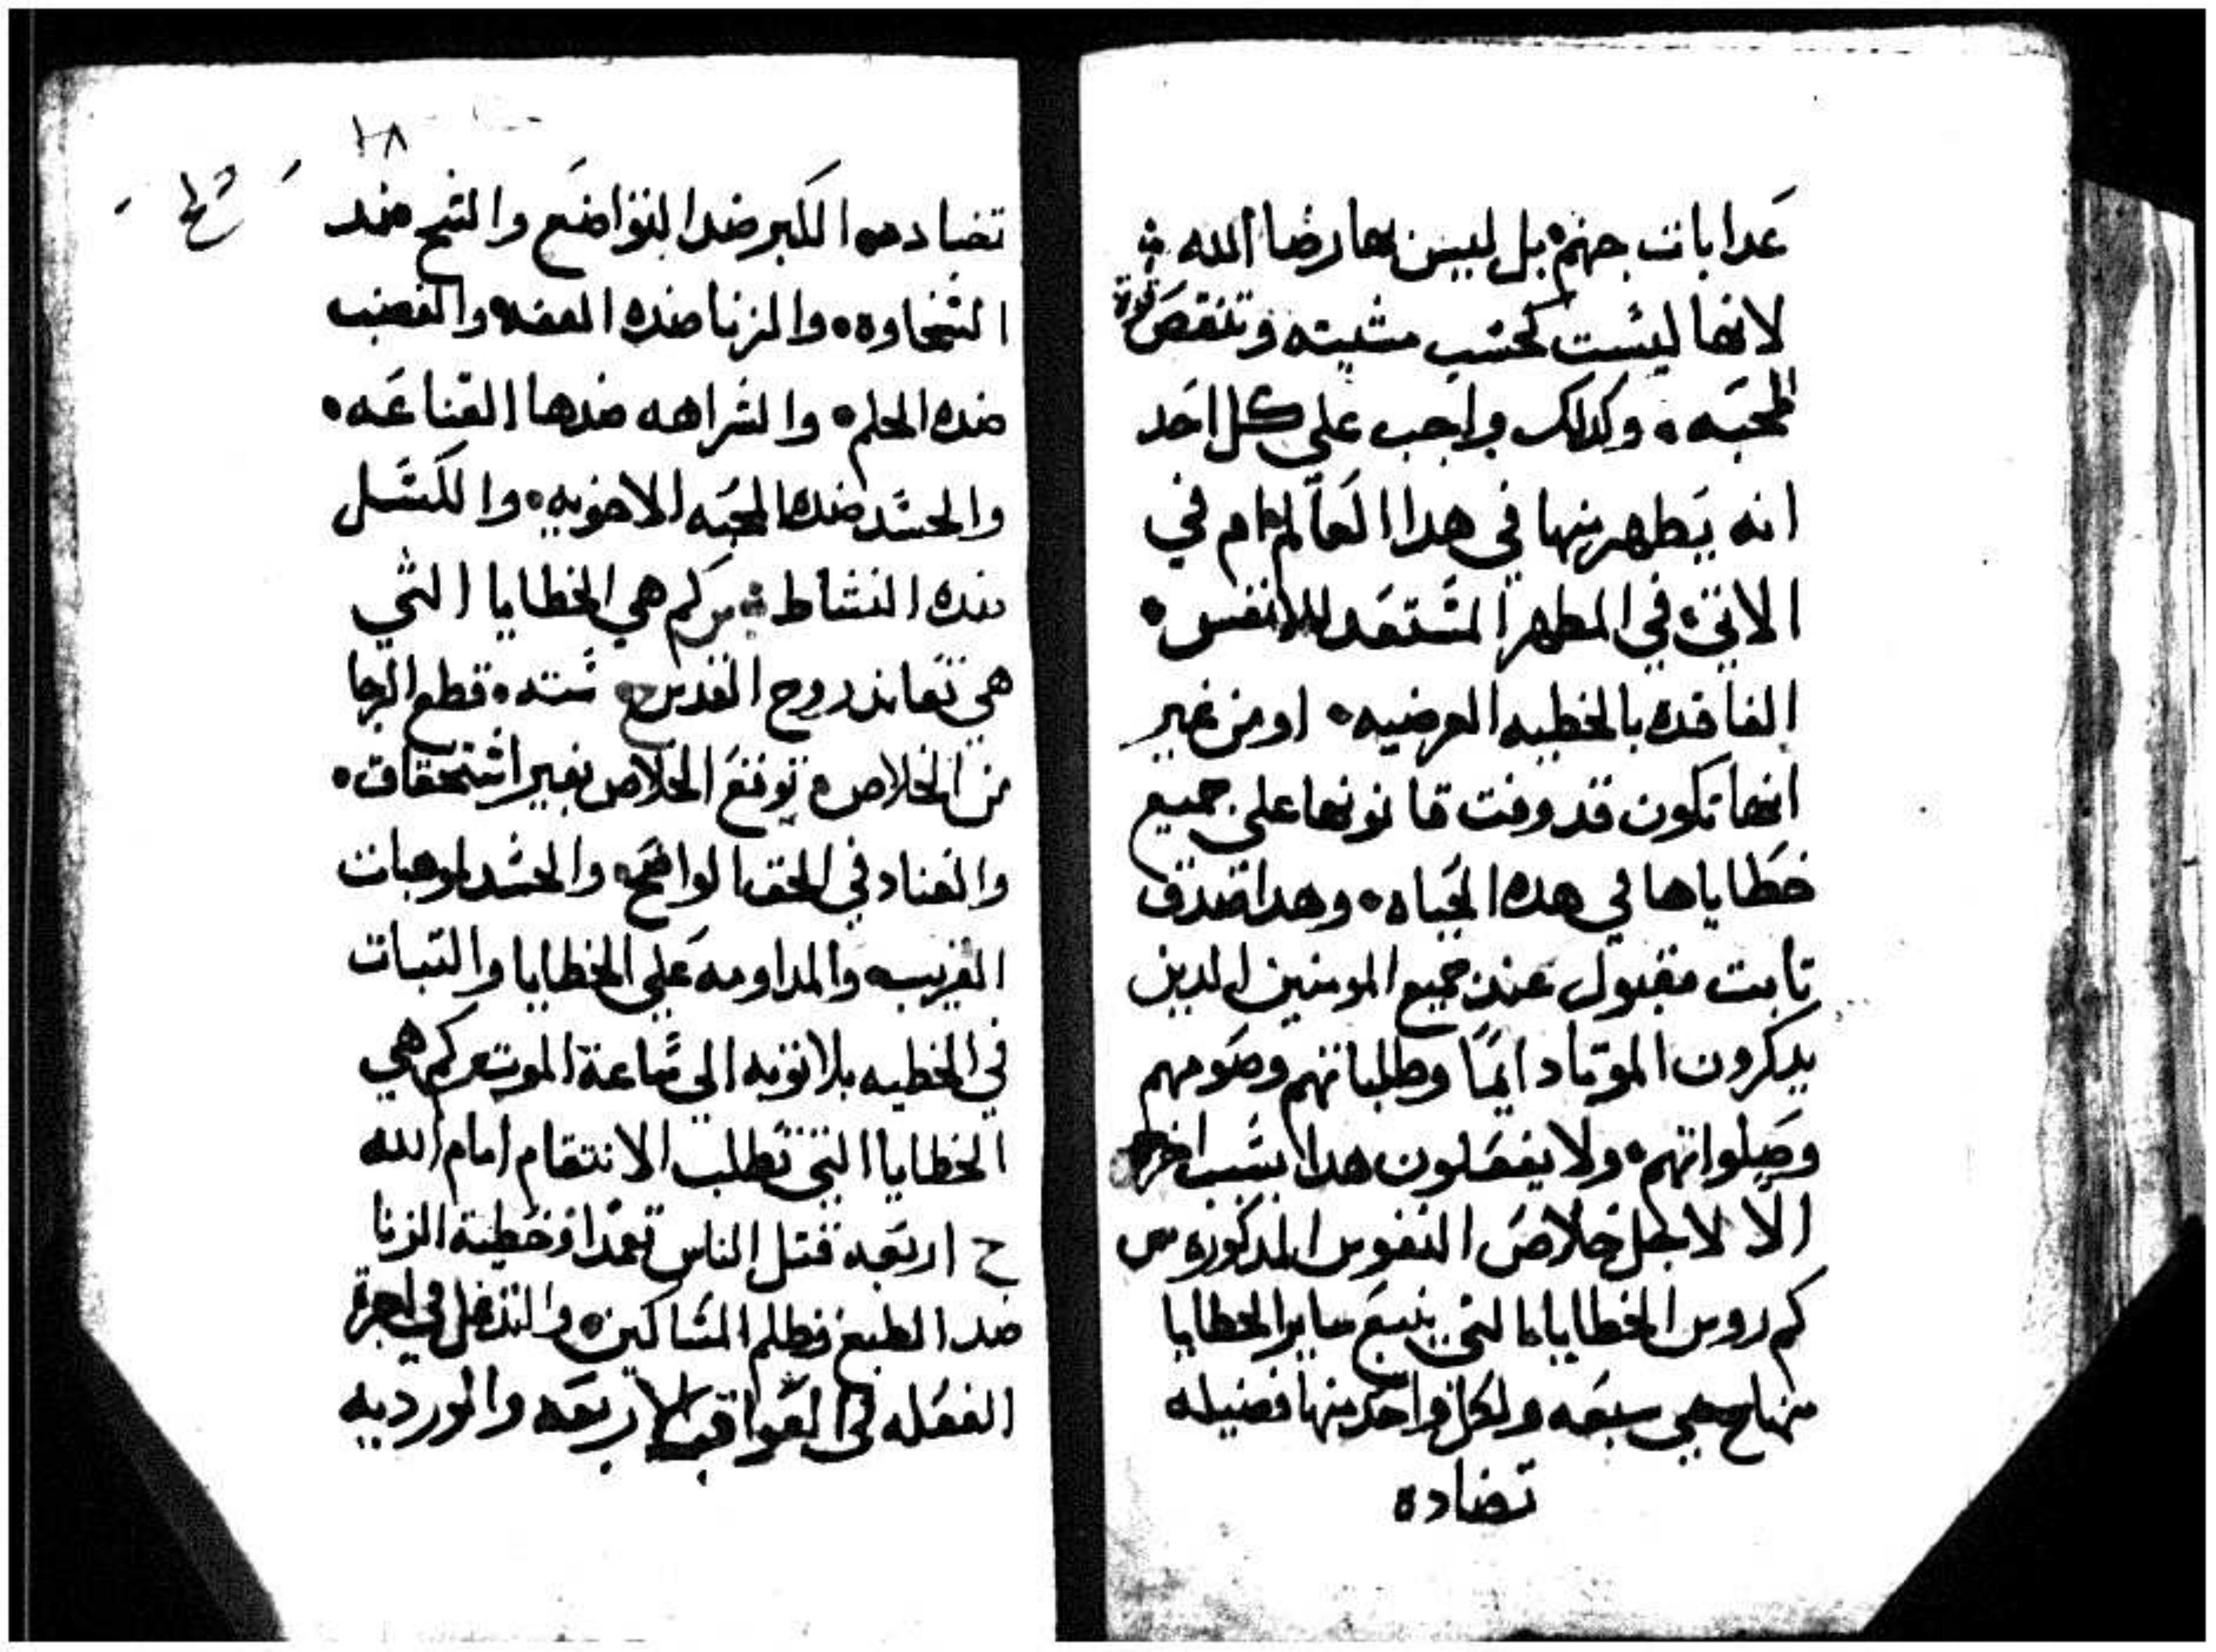 عدابات جهنم بل ليس بها رضا الله
لانها ليست كحسب مشيته وتنقص
المحبه وكدلك واجب علي كل احد
انه يتطهر منها في هدا العالم ام في
الاتي في المطهر المستعد للانفس
الفاقده بالخطيه العرضيه او من غير
انها تكون قد وفت قانونها علي جميع
خطاياها في هده الحياه وهدا صدق
تابت مقبول عند جميع المومنين الدين
يدكرون الموتا دايمًا وطلباتهم وصومهم
وصلواتهم ولا يفعلون هدا بسبب اخر
الا لاجل خلاص النفوس المدكوره س
كم روس الخطايا التي ينبع ساير الخطايا
منها ج هي سبعه ولكل واحد منها فضيله
تضاده
٢٨
تضادده الكبر ضد التواضع والشح ضد
السخاوه والزنا ضده العفه والغضب
ضده الحلم والشراهه ضدها القناعه
والحسد ضدها المحبه الاخويه والكسل
ضده النشاط س كم هي الخطايا التي
هي تعاند روح القدس ج سته قطع الرجا
من الخلاص وتوقع الخلاص بغير استحقاق
والعناد في الحق الواضح والحسد لموهبات
القريب والمداومه علي الخطايا والتبات
في الخطيه بلا توبه الي ساعة الموت س كم هي
الخطايا التي تطلب الانتقام امام الله
ج اربعه قتل الناس تعمدا وخطية الزنا
ضد الطبع وظلم المساكين والتدغل في اجرة
الفعله في العواقب الاربعه والورديه